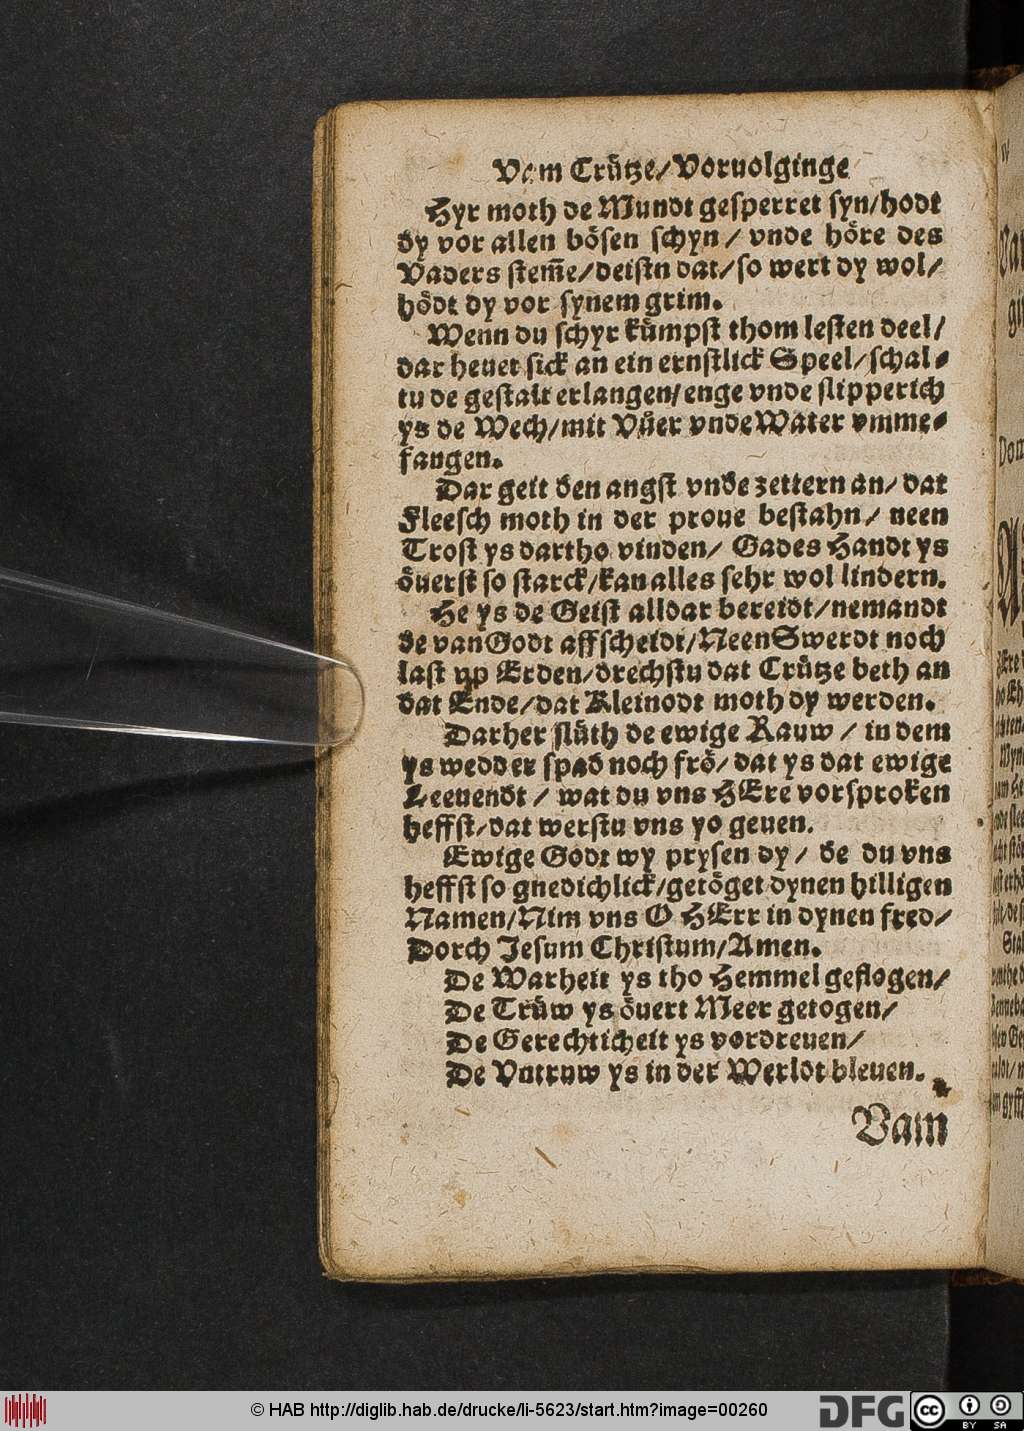 Vam Crütze/Voruolginge
Hyr moth de Mundt gesperret syn/hödt
dy vor allen bösen schyn/ vnde höre des
Vaders stem̄e/deistu dat/so wert dy wol/
hödt dy vor synem grim.
Wenn du schyr kümpst thom lesten deel/
dar heuet sick an ein ernstlick Speel/schal⸗
tu de gestalt erlangen/enge vnde slipperich
ys de Wech/mit Vüer vnde Water vmme⸗
fangen.
Dar geit den angst vnde zettern an/ dat
Fleesch moth in der proue bestahn/ neen
Trost ys dartho vinden/ Gades Handt ys
öuerst so starck/kan alles sehr wol lindern.
He ys de Geist alldar bereidt/nemandt
de van Godt affscheidt/Neen Swerdt noch
last vp Erden/drechstu dat Crütze beth an
dat Ende/dat Kleinodt moth dy werden.
Darher slüth de ewige Rauw / in dem
ys wedder spad noch frö/ dat ys dat ewige
Leeuendt / wat du vns HEre vorsproken
heffst/dat werstu vns yo geuen.
Ewige Godt wy prysen dy/ de du vns
heffst so gnedichlick/getöget dynen hilligen
Namen/Nim vns O HErr in dynen fred/
Dorch Jesum Christum/Amen.
De Warheit ys tho Hemmel geflogen/
De Trüw ys öuert Meer getogen/
De Gerechticheit ys vordreuen/
De Vntruw ys in der Werldt bleuen.
Vam
© HAB http://diglib.hab.de/drucke/li-5623/start.htm?image=00260
DFG
cc
BY SA